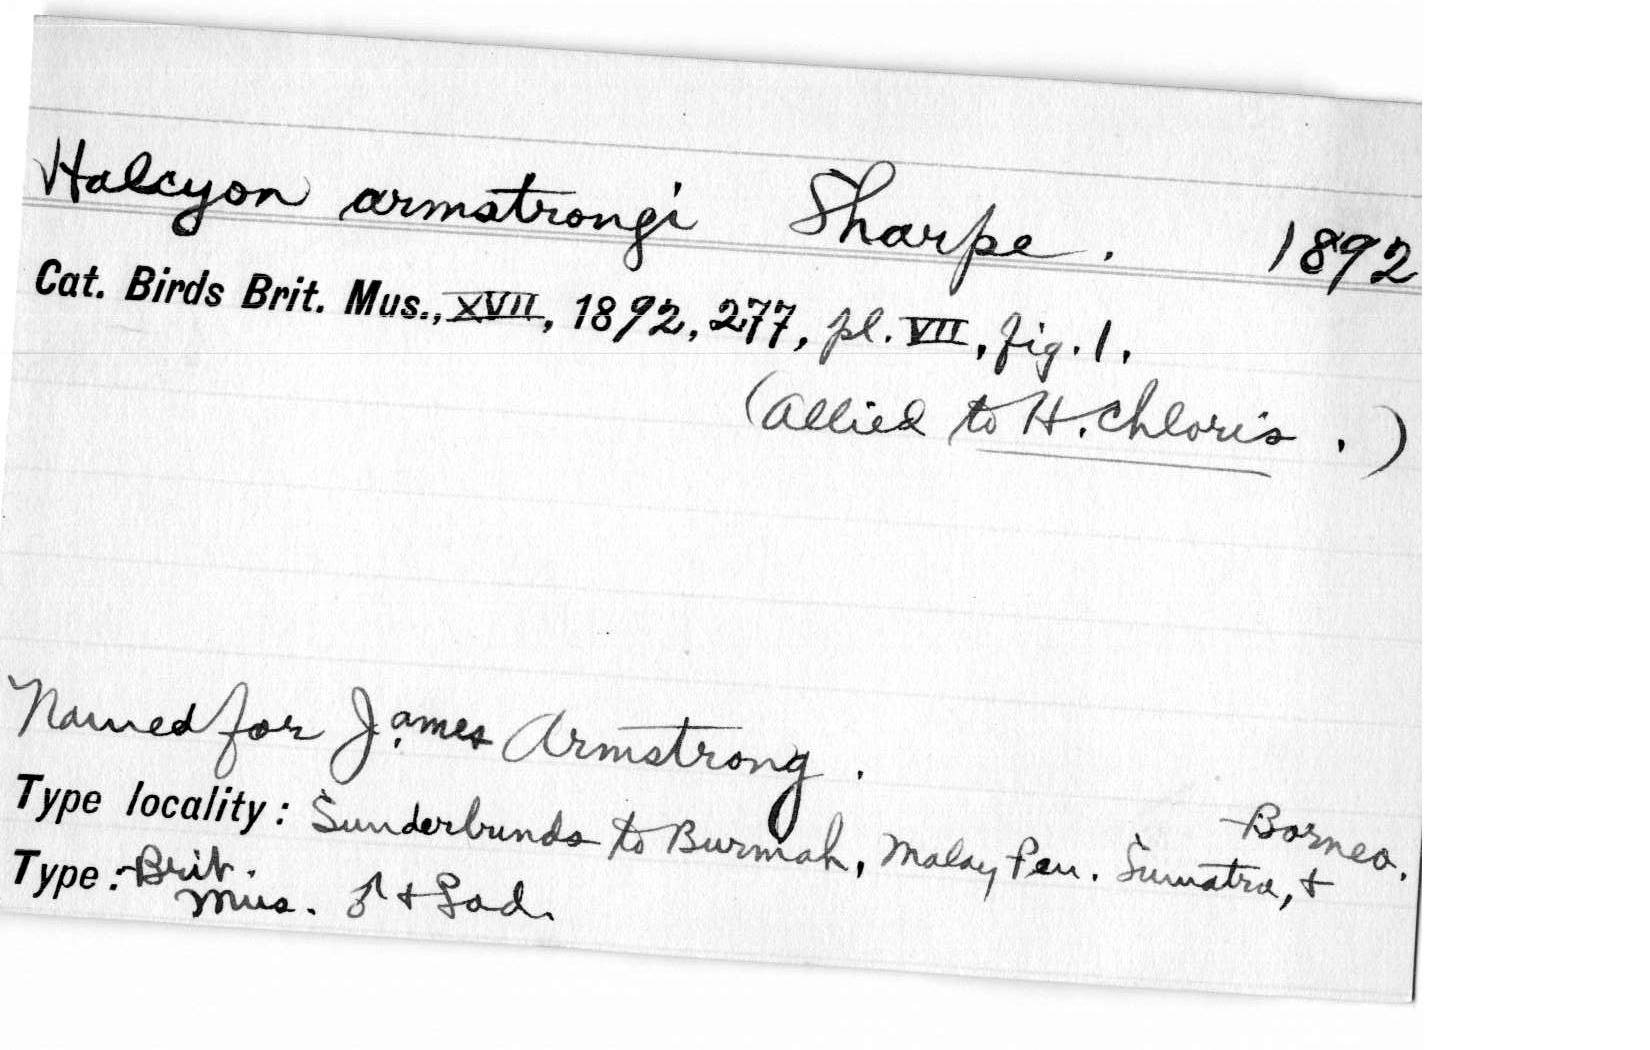 Halcyon armstrongi Sharpe. 1892
Cat. Birds Brit. Mus., XVII, 1892, 277, pl. VII, fig. 1.
(Allied to H. chloris.)
Named for James Armstrong.
Type locality: Sunderbunds to Burmah, Malay Pen. Sumatra, + Borneo.
Type: Brit.
Mus. ♂ + ♀ ad.